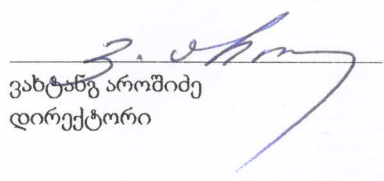 ვახტანგ აროშიძე
დირექტორი